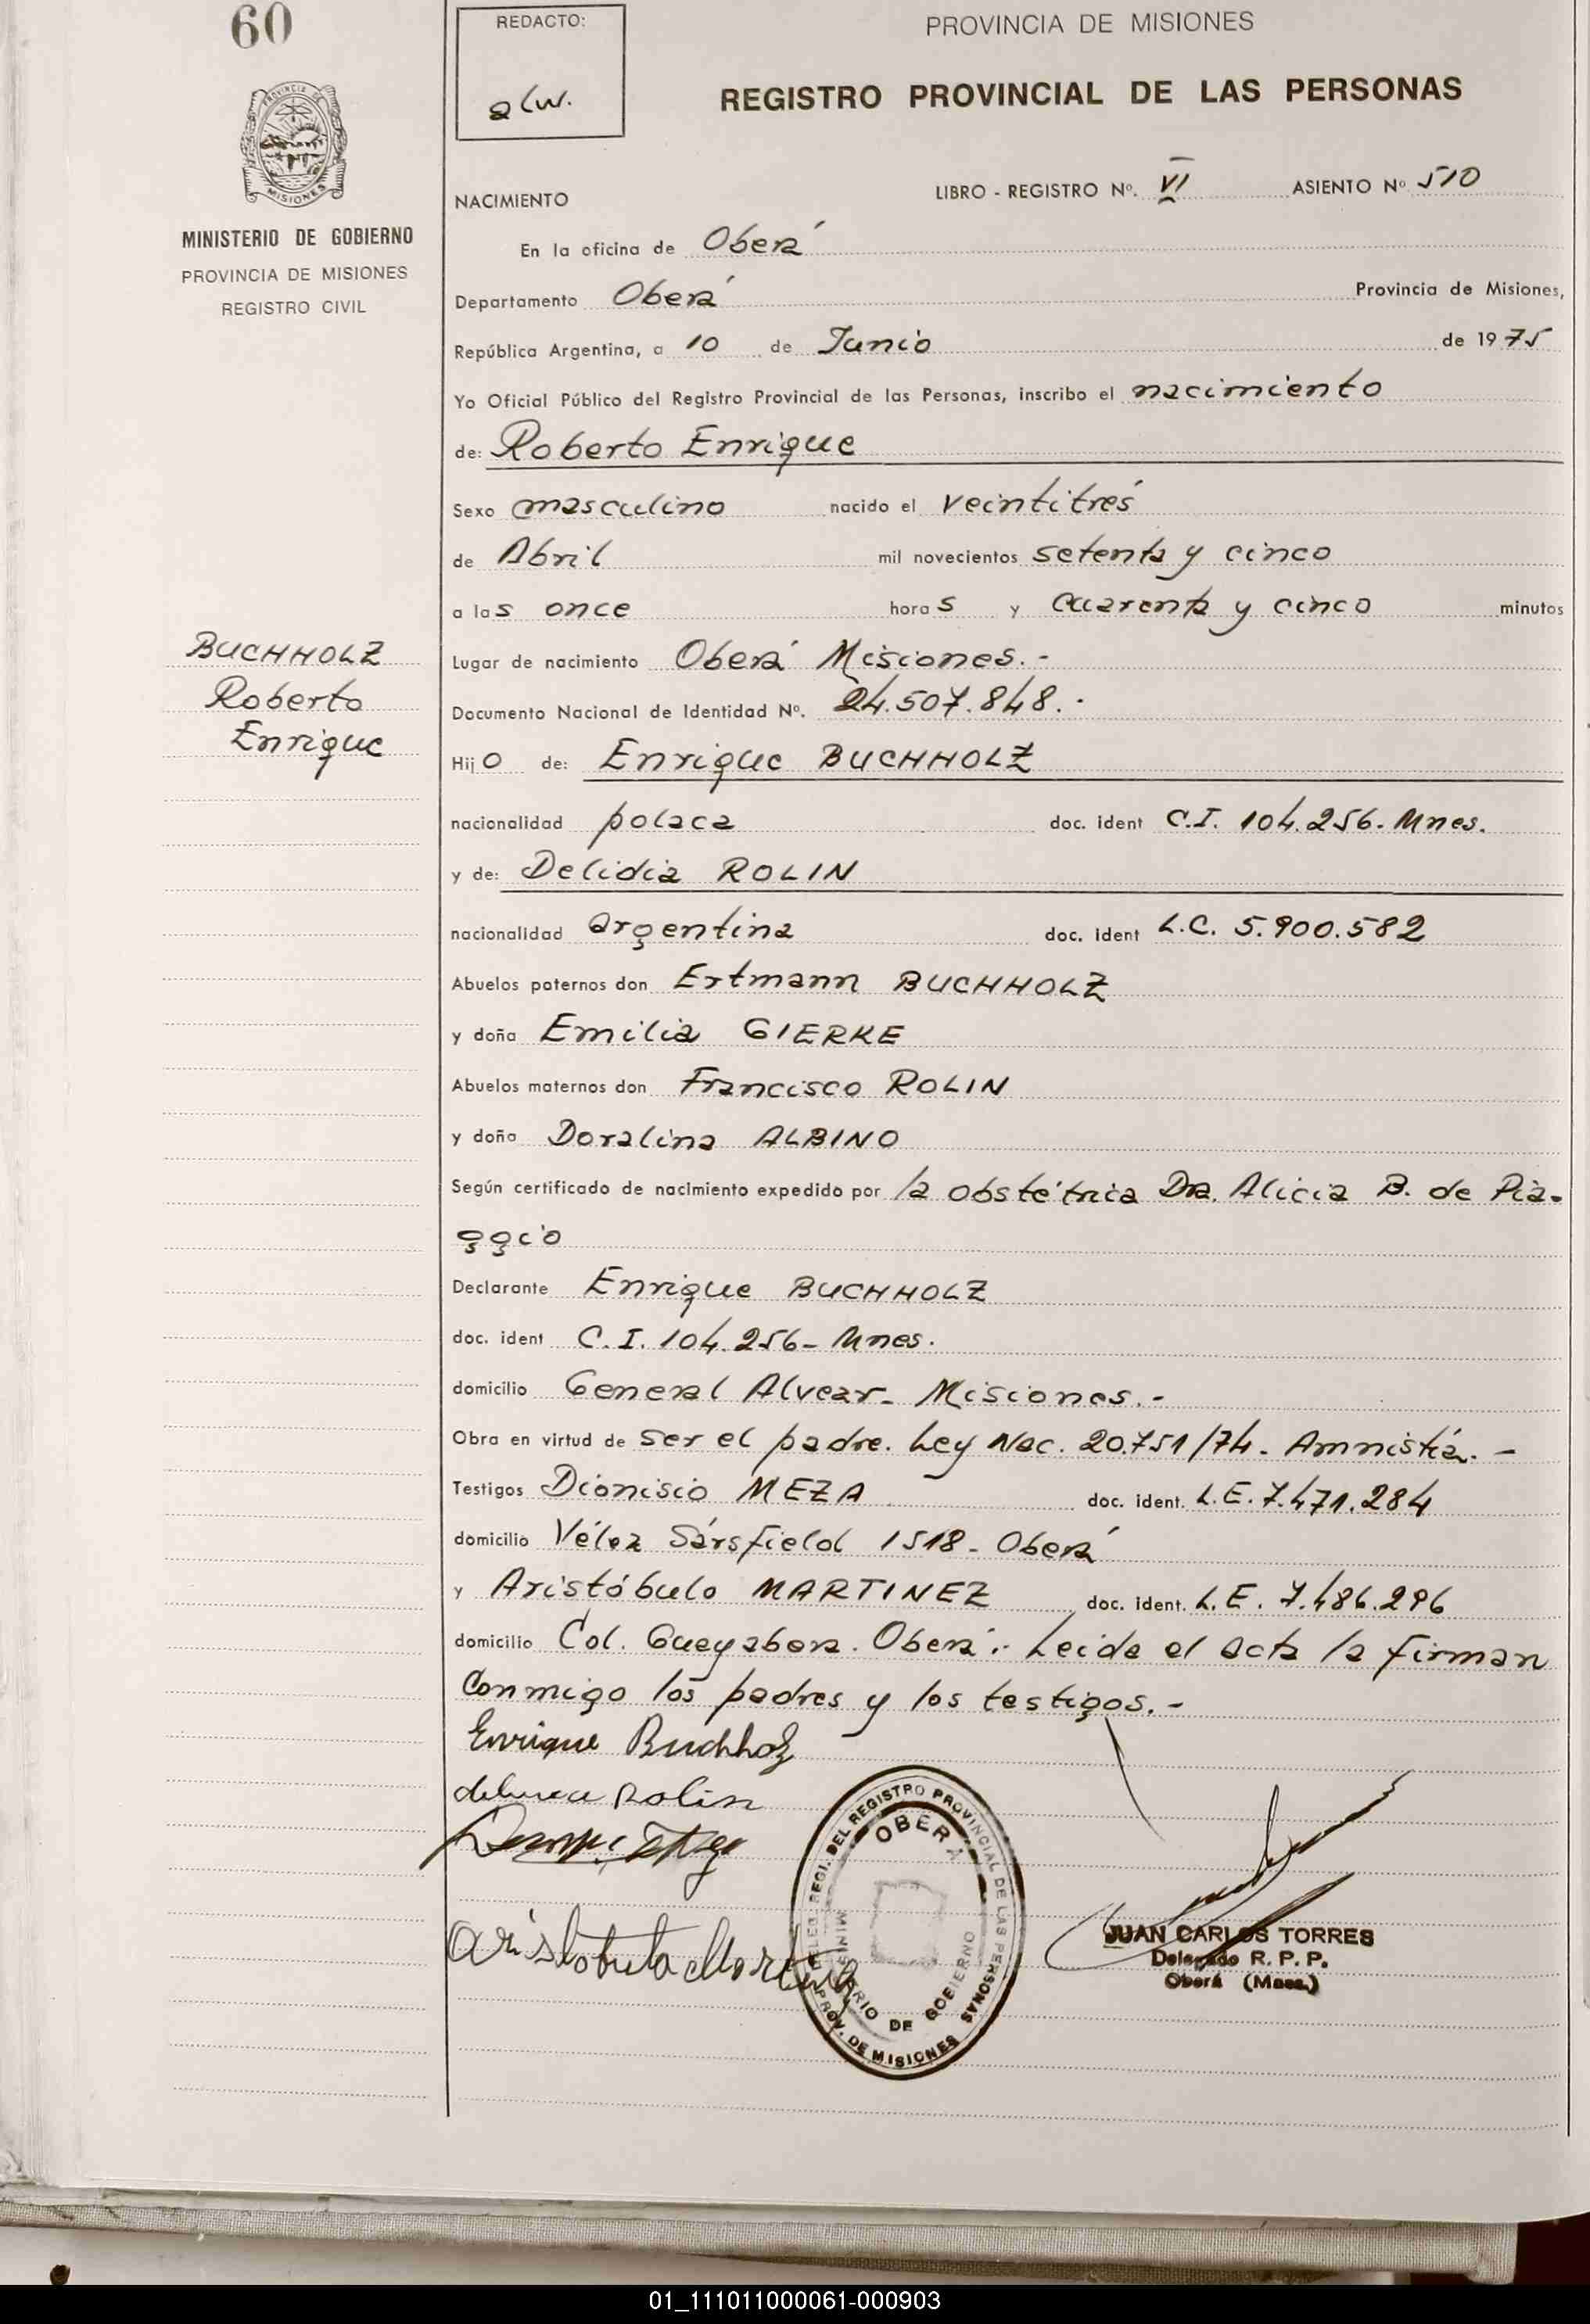 60
REDACTO:
alw.
PROVINCIA DE MISIONES
REGISTRO PROVINCIAL DE LAS PERSONAS
PROVINCIA DE
MISIONES
MINISTERIO DE GOBIERNO
PROVINCIA DE MISIONES
REGISTRO CIVIL
NACIMIENTO LIBRO - REGISTRO Nº. VI ASIENTO Nº 510
En la oficina de Oberá
Departamento Oberá Provincia de Misiones,
República Argentina, a 10 de Junio de 1975
Yo Oficial Público del Registro Provincial de las Personas, inscribo el nacimiento
de: Roberto Enrique
Sexo masculino nacido el veintitrés
de Abril mil novecientos setenta y cinco
a las once horas y cuarenta y cinco minutos
BUCHHOLZ
Roberto
Enrique
Lugar de nacimiento Oberá Misiones.-
Documento Nacional de Identidad Nº. 24.507.848.-
Hijo de: Enrique BUCHHOLZ
nacionalidad polaca doc. ident C.I. 104.256.Mnes.
y de: Delidia ROLIN
nacionalidad argentina doc. ident L.C. 5.900.582
Abuelos paternos don Ertmann BUCHHOLZ
y doña Emilia GIERKE
Abuelos maternos don Francisco ROLIN
y doña Doralina ALBINO
Según certificado de nacimiento expedido por la obstétrica Dra. Alicia B. de Pia-
ggio
Declarante Enrique BUCHHOLZ
doc. ident C.I. 104.256- Mnes.
domicilio General Alvear- Misiones.-
Obra en virtud de ser el padre. Ley Nac. 20.751/74- Amnistía.-
Testigos Dionisio MEZA doc. ident. L.E. 7.471.284
domicilio Vélez Sársfield 1518- Oberá
y Aristóbulo MARTINEZ doc. ident. L.E. 7.486.296
domicilio Col. Gueyabera. Oberá.- Leida el acta la firman
conmigo los padres y los testigos.-
Enrique Buchholz
Rolin
aristobulo Martinez
REGI. DEL REGISTRO PROVINCIAL DE LAS PERSONAS
OBERÁ
MINISTERIO DE GOBIERNO
PROV. DE MISIONES
JUAN CARLOS TORRES
Delegado R. P. P.
Oberá (Mnes.)
01_111011000061-000903